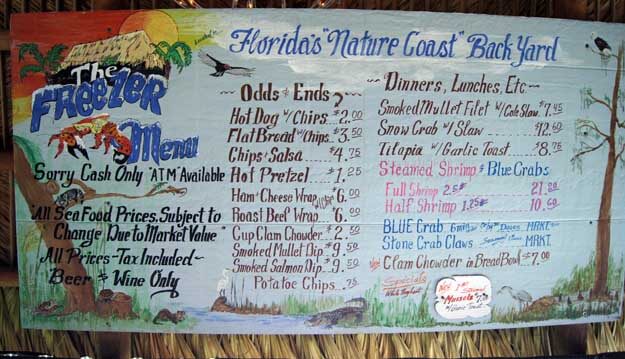 Florida's "Nature Coast" Back Yard
The
Freezer
Menu
Sorry Cash Only "ATM" Available
"All Sea Food Prices, Subject to
Change Due to Market Value"
All Prices - Tax Included ~
Beer & Wine Only
~ Odds & Ends ~
Hot Dog w/Chips $2.00
Flat Bread w/Chips $3.50
Chips & Salsa $4.75
Hot Pretzel $1.25
Ham & Cheese Wrap $6.00
Roast Beef Wrap $6.00
Cup Clam Chowder $2.50
Smoked Mullet Dip $9.50
Smoked Salmon Dip $9.50
Potatoe Chips .75
~ Dinners, Lunches, Etc ~
Smoked Mullet Filet w/Cole Slaw $7.45
Snow Crab w/Slaw $12.60
Tilapia w/Garlic Toast $8.75
Steamed Shrimp & Blue Crabs
Full Shrimp 2.5# 21.20
Half Shrimp 1.25# 10.60
BLUE Crab MRKT.
Stone Crab Claws MRKT.
New Clam Chowder in Bread Bowl $7.00
Specials
"Mussels"
w/Garlic Toast